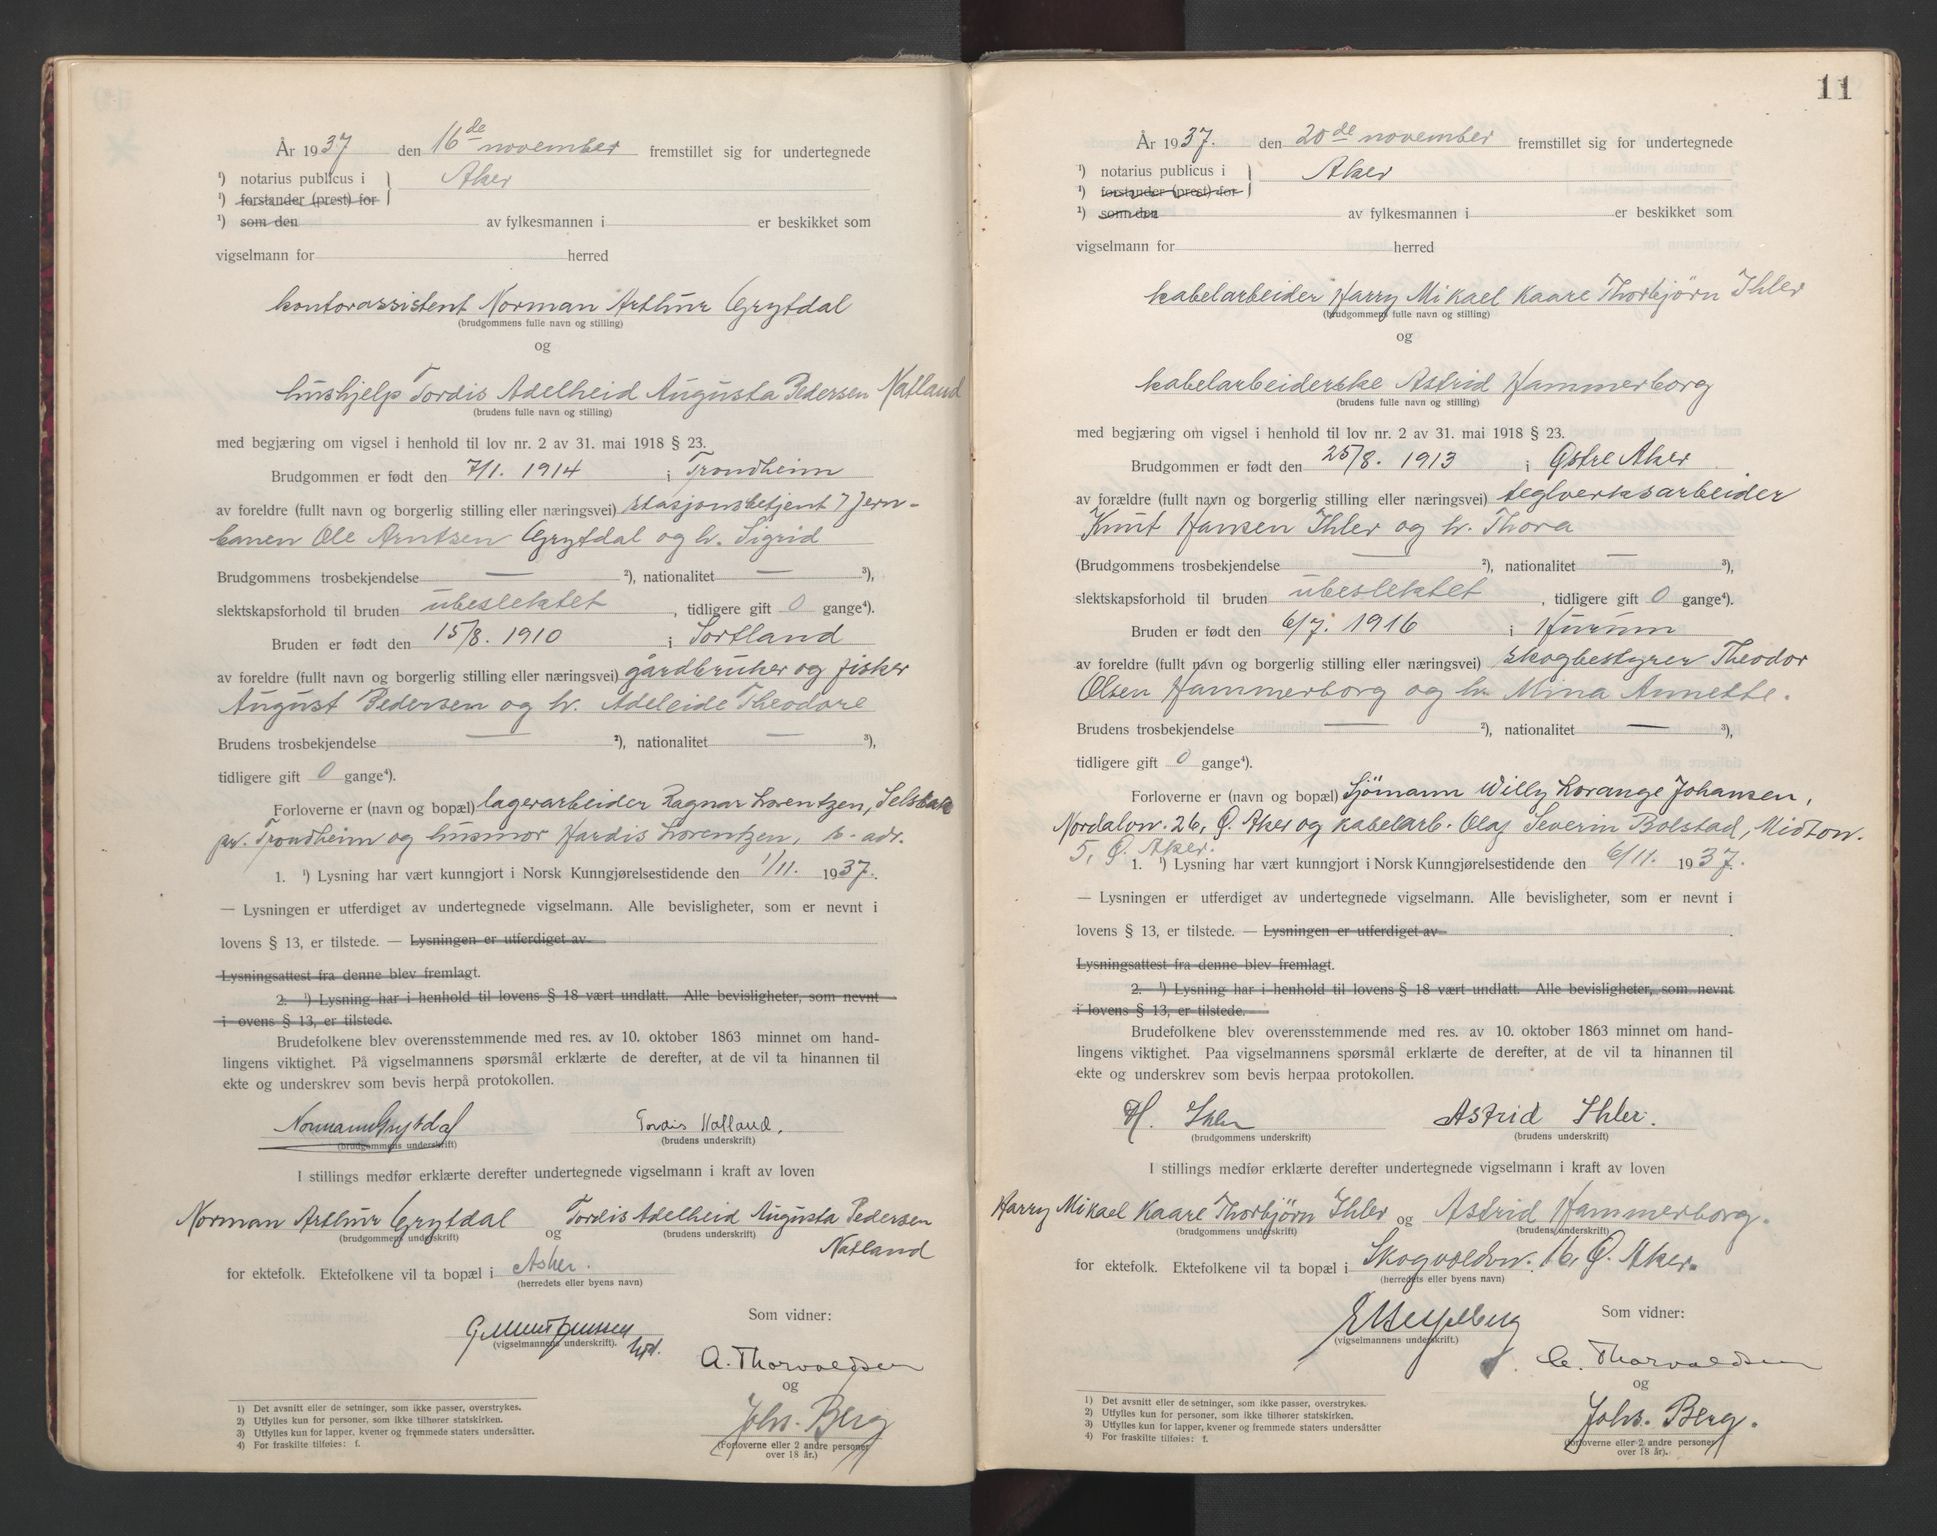 År 1937 den 16de november fremstillet sig for undertegnede
¹) notarius publicus i } Aker
¹) forstander (prest) for
¹) som den av fylkesmannen i er beskikket som
vigselmann for herred
kontorassistent Norman Arthur Grytdal
(brudgommens fulle navn og stilling)
og
hushjelp Tordis Adelheid Augusta Pedersen Natland
(brudens fulle navn og stilling)
med begjæring om vigsel i henhold til lov nr. 2 av 31. mai 1918 § 23.
Brudgommen er født den 7/1. 1914 i Trondheim
av foreldre (fullt navn og borgerlig stilling eller næringsvei) stasjonsbetjent v/ jern-
banen Ole Arntsen Grytdal og h. Sigrid
Brudgommens trosbekjendelse — ²), nationalitet — ³),
slektskapsforhold til bruden ubeslektet, tidligere gift 0 gange⁴).
Bruden er født den 15/8. 1910 i Sortland
av foreldre (fullt navn og borgerlig stilling eller næringsvei) gårdbruker og fisker
August Pedersen og h. Adeleide Theodore
Brudens trosbekjendelse — ²), nationalitet — ³),
tidligere gift 0 gange⁴).
Forloverne er (navn og bopæl) lagerarbeider Ragnar Lorentzen, Selsbak
pr. Trondheim og husmor Hardis Lorentzen, s. adr.
1. ¹) Lysning har vært kunngjort i Norsk Kunngjørelsestidende den 1/11. 1937.
— Lysningen er utferdiget av undertegnede vigselmann. Alle bevisligheter, som er nevnt i
lovens § 13, er tilstede. — Lysningen er utferdiget av
Lysningsattest fra denne blev fremlagt.
2. ¹) Lysning har i henhold til lovens § 18 vært undlatt. Alle bevisligheter, som nevnt
i ovens § 13, er tilstede.
Brudefolkene blev overensstemmende med res. av 10. oktober 1863 minnet om hand-
lingens viktighet. På vigselmannens spørsmål erklærte de derefter, at de vil ta hinannen til
ekte og underskrev som bevis herpå protokollen.
Norman Grytdal Tordis Natland.
(brudgommens underskrift) (brudens underskrift)
I stillings medfør erklærte derefter undertegnede vigselmann i kraft av loven
Norman Arthur Grytdal og Tordis Adelheid Augusta Pedersen
(brudgommens underskrift) (brudens underskrift)
Natland
for ektefolk. Ektefolkene vil ta bopæl i Asker.
(herredets eller byens navn)
Som vidner:
(vigselmannens underskrift).
A. Thorvaldsen
og
Johs. Berg
(Forloverne eller 2 andre personer
over 18 år.)
1) Det avsnitt eller de setninger, som ikke passer, overstrykes.
2) Utfylles kun for personer, som ikke tilhører statskirken.
3) Utfylles kun for lapper, kvener og fremmede staters undersåtter.
4) For fraskilte tilføies: f.
11
År 1937. den 20de november fremstillet sig for undertegnede
¹) notarius publicus i } Aker
¹) forstander (prest) for
¹) som den av fylkesmannen i er beskikket som
vigselmann for herred
kabelarbeider Harry Mikael Kaare Thorbjørn Ihler
(brudgommens fulle navn og stilling)
og
kabelarbeiderske Astrid Hammerborg
(brudens fulle navn og stilling)
med begjæring om vigsel i henhold til lov nr. 2 av 31. mai 1918 § 23.
Brudgommen er født den 25/8. 1913 i Østre Aker
av forældre (fullt navn og borgerlig stilling eller næringsvei) teglverksarbeider
Knut Hansen Ihler og h. Thora
(Brudgommens trosbekjendelse — ²), nationalitet — ³),
slektskapsforhold til bruden ubeslektet, tidligere gift 0 gange⁴).
Bruden er født den 6/7. 1916 i Hurum
av foreldre (fullt navn og borgerlig stilling eller næringsvei) skogbestyrer Theodor
Olsen Hammerborg og h. Mina Annette.
Brudens trosbekjendelse — ²), nationalitet — ³),
tidligere gift 0 gange⁴).
Forloverne er (navn og bopæl) Sjömann Willy Lorange Johansen,
Nordalvn. 26, Ø. Aker og kabelarb. Olaf Severin Bolstad, Midton.
5, Ø. Aker.
1. ¹) Lysning har vært kunngjort i Norsk Kunngjørelsestidende den 6/11. 1937.
— Lysningen er utferdiget av undertegnede vigselmann. Alle bevisligheter, som er nevnt i
lovens § 13, er tilstede. — Lysningen er utferdiget av
Lysningsattest fra denne blev fremlagt.
2. ¹) Lysning har i henhold til lovens § 18 vært undlatt. Alle bevisligheter, som nevnt
i lovens § 13, er tilstede.
Brudefolkene blev overensstemmende med res. av 10. oktober 1863 minnet om hand-
lingens viktighet. Paa vigselmannens spørsmål erklærte de derefter, at de vil ta hinannen til
ekte og underskrev som bevis herpaa protokollen.
H. Ihler Astrid Ihler.
(brudgommens underskrift) (brudens underskrift)
I stillings medfør erklærte derefter undertegnede vigselmann i kraft av loven
Harry Mikael Kaare Thorbjørn Ihler og Astrid Hammerborg.
(brudgommens underskrift) (brudens underskrift)
for ektefolk. Ektefolkene vil ta bopæl i Skogvoldvn. 16, Ø. Aker.
(herredets eller byens navn)
Som vidner:
(vigselmannens underskrift.)
A. Thorvaldsen
og
Johs. Berg.
(forloverne eller 2 andre personer
over 18 år).
1) Det avsnitt eller de setninger, som ikke passer, overstrykes.
2) Utfylles kun for personer, som ikke tilhører statskirken.
3) Utfylles kun for lapper, kvener og fremmede staters undersåtter
4) For fraskilte tilføies: f.